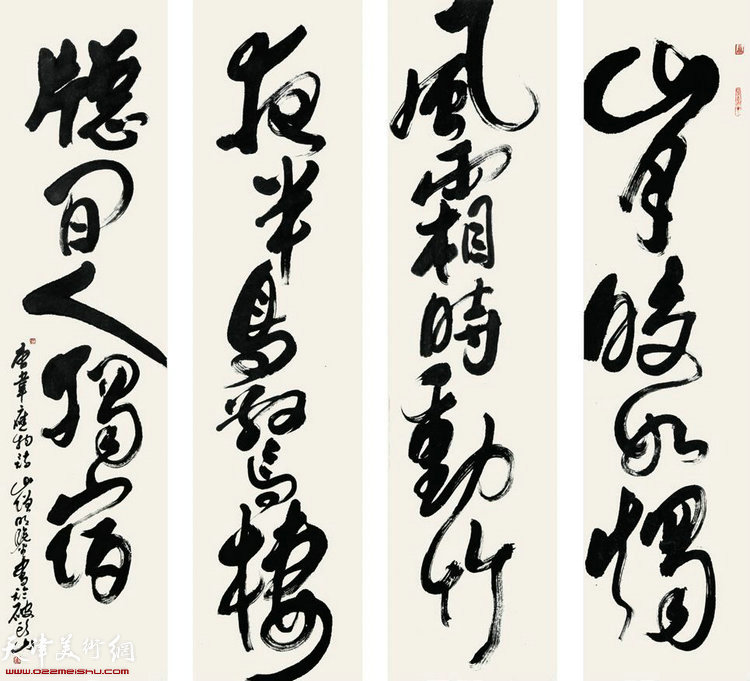 山月皎如燭
風霜時動竹
夜半鳥驚棲
牕間人獨宿
唐韋應物詩 山僧明書於破頭山
天津美術網
www.022meishu.com